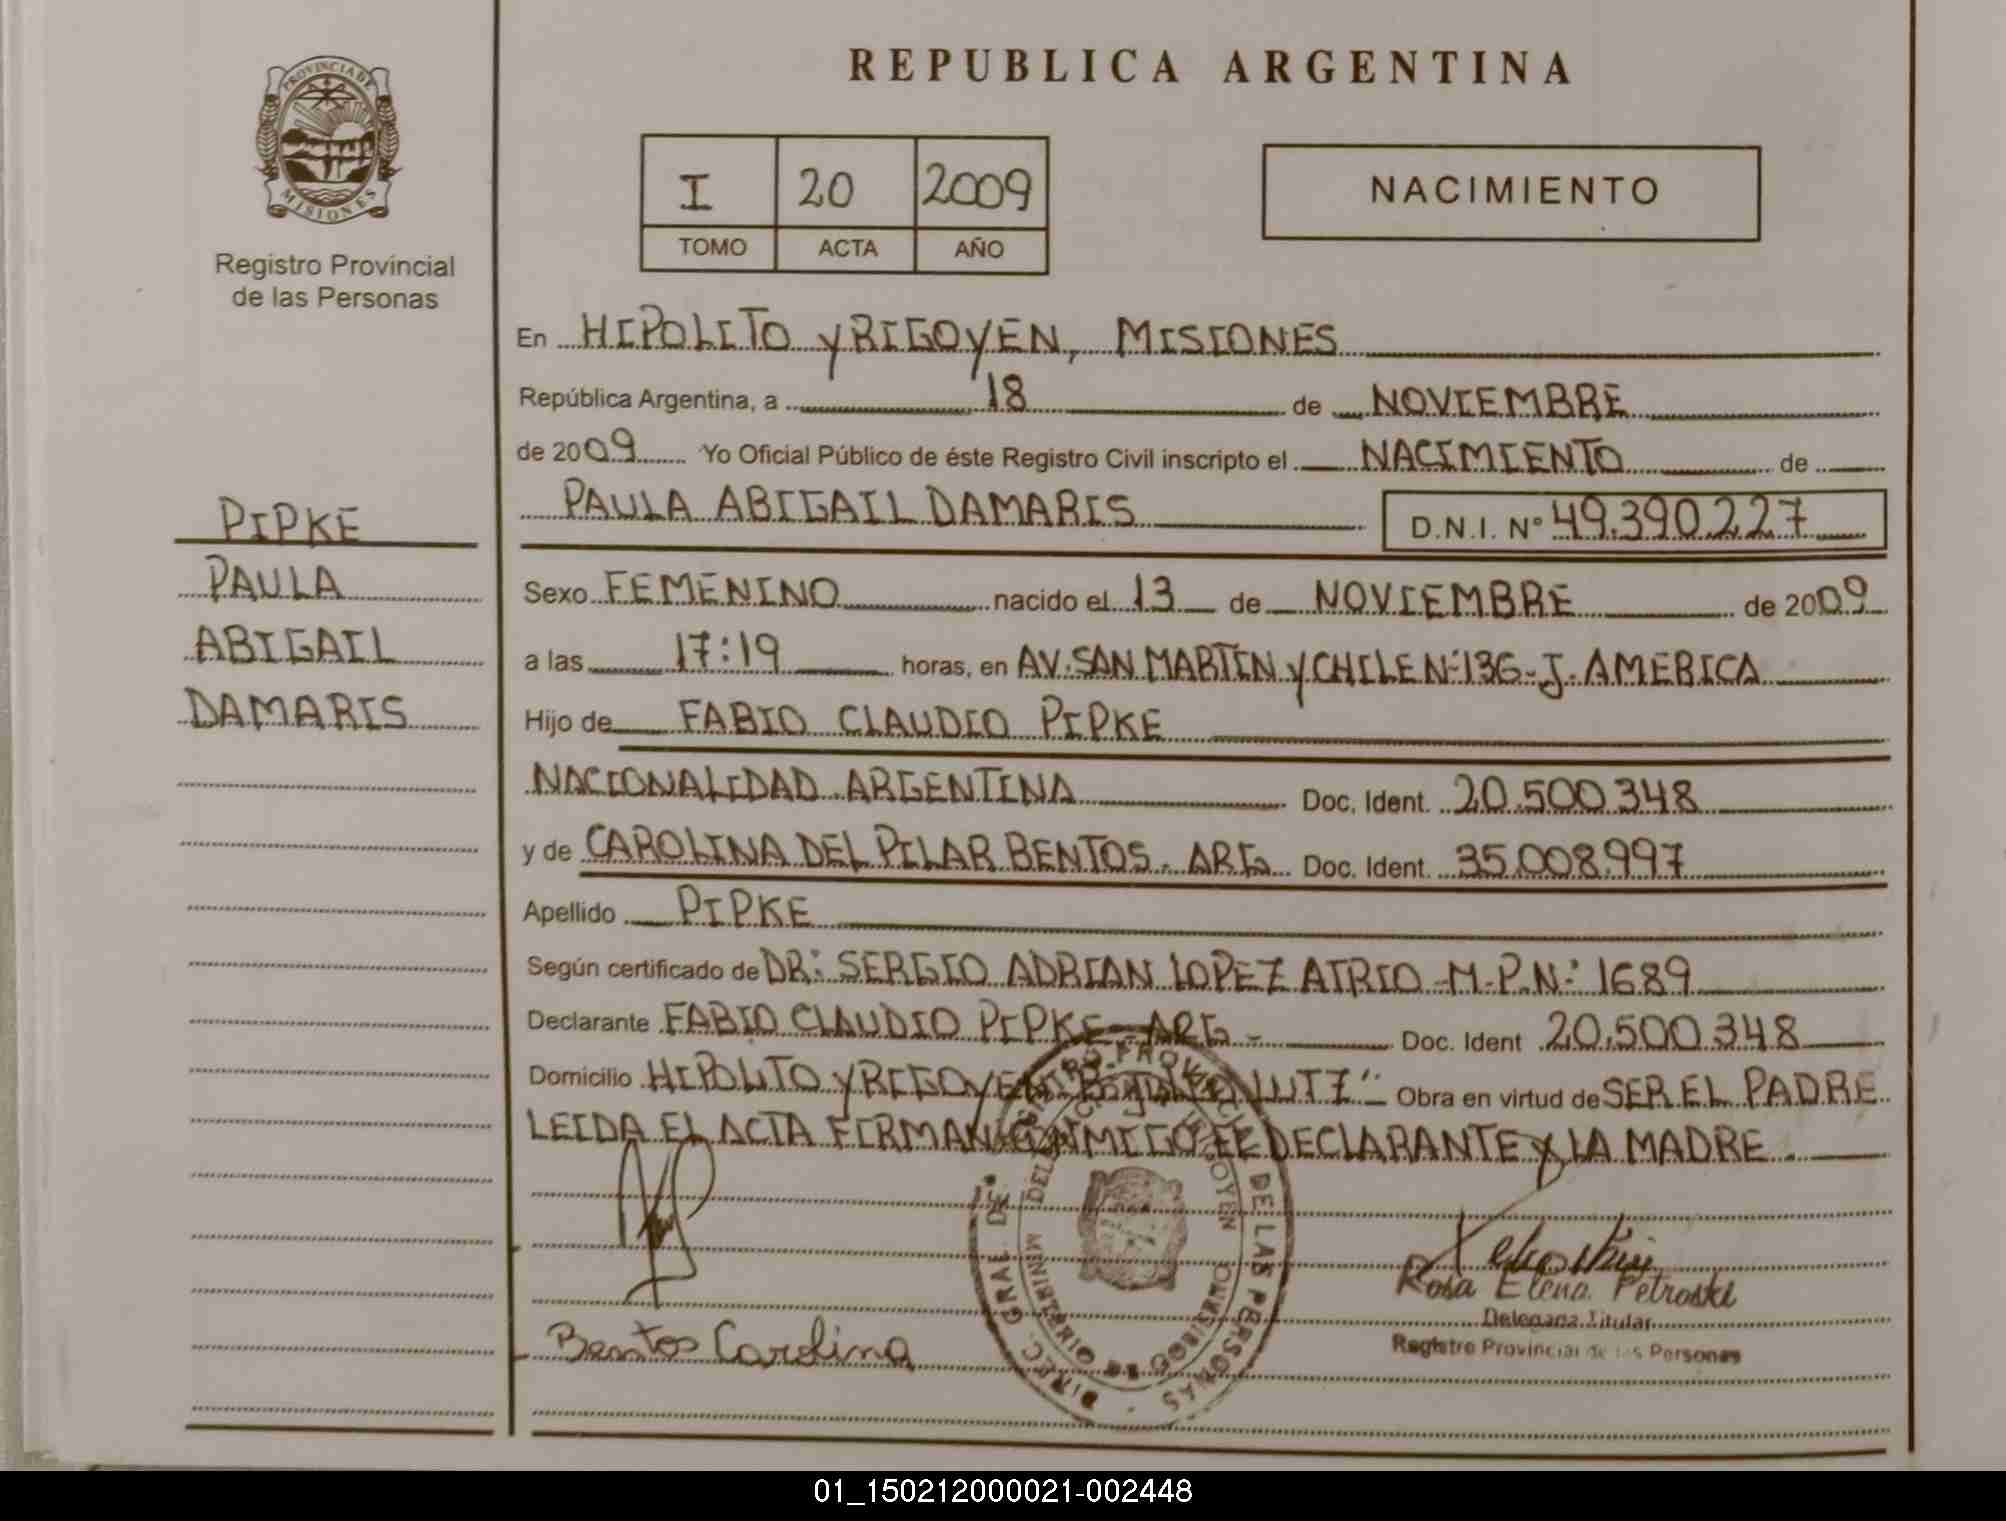 REPUBLICA ARGENTINA
PROVINCIA DE
MISIONES
Registro Provincial
de las Personas
I 20 2009
TOMO ACTA AÑO
NACIMIENTO
En HIPOLITO YRIGOYEN, MISIONES
República Argentina, a 18 de NOVIEMBRE
de 2009 Yo Oficial Público de éste Registro Civil inscripto el NACIMIENTO de
PAULA ABIGAIL DAMARIS D.N.I. Nº 49.390.227
PIPKE
PAULA
ABIGAIL
DAMARIS
Sexo FEMENINO nacido el 13 de NOVIEMBRE de 2009
a las 17:19 horas, en AV. SAN MARTIN Y CHILE Nº 136 - J. AMERICA
Hijo de FABIO CLAUDIO PIPKE
NACIONALIDAD ARGENTINA Doc. Ident. 20.500.348
y de CAROLINA DEL PILAR BENTOS. ARG Doc. Ident. 35.008.997
Apellido PIPKE
Según certificado de DR: SERGIO ADRIAN LOPEZ ATRIO - M.P.N: 1689
Declarante FABIO CLAUDIO PIPKE - ARG - Doc. Ident 20.500.348
Domicilio HIPOLITO YRIGOYEN Obra en virtud de SER EL PADRE
LEIDA EL ACTA FIRMAN CONMIGO EL DECLARANTE Y LA MADRE.
DE LAS PERSONAS
Bentos Carolina
Rosa Elena Petroski
Delegada Titular
Registro Provincial de las Personas
01_150212000021-002448